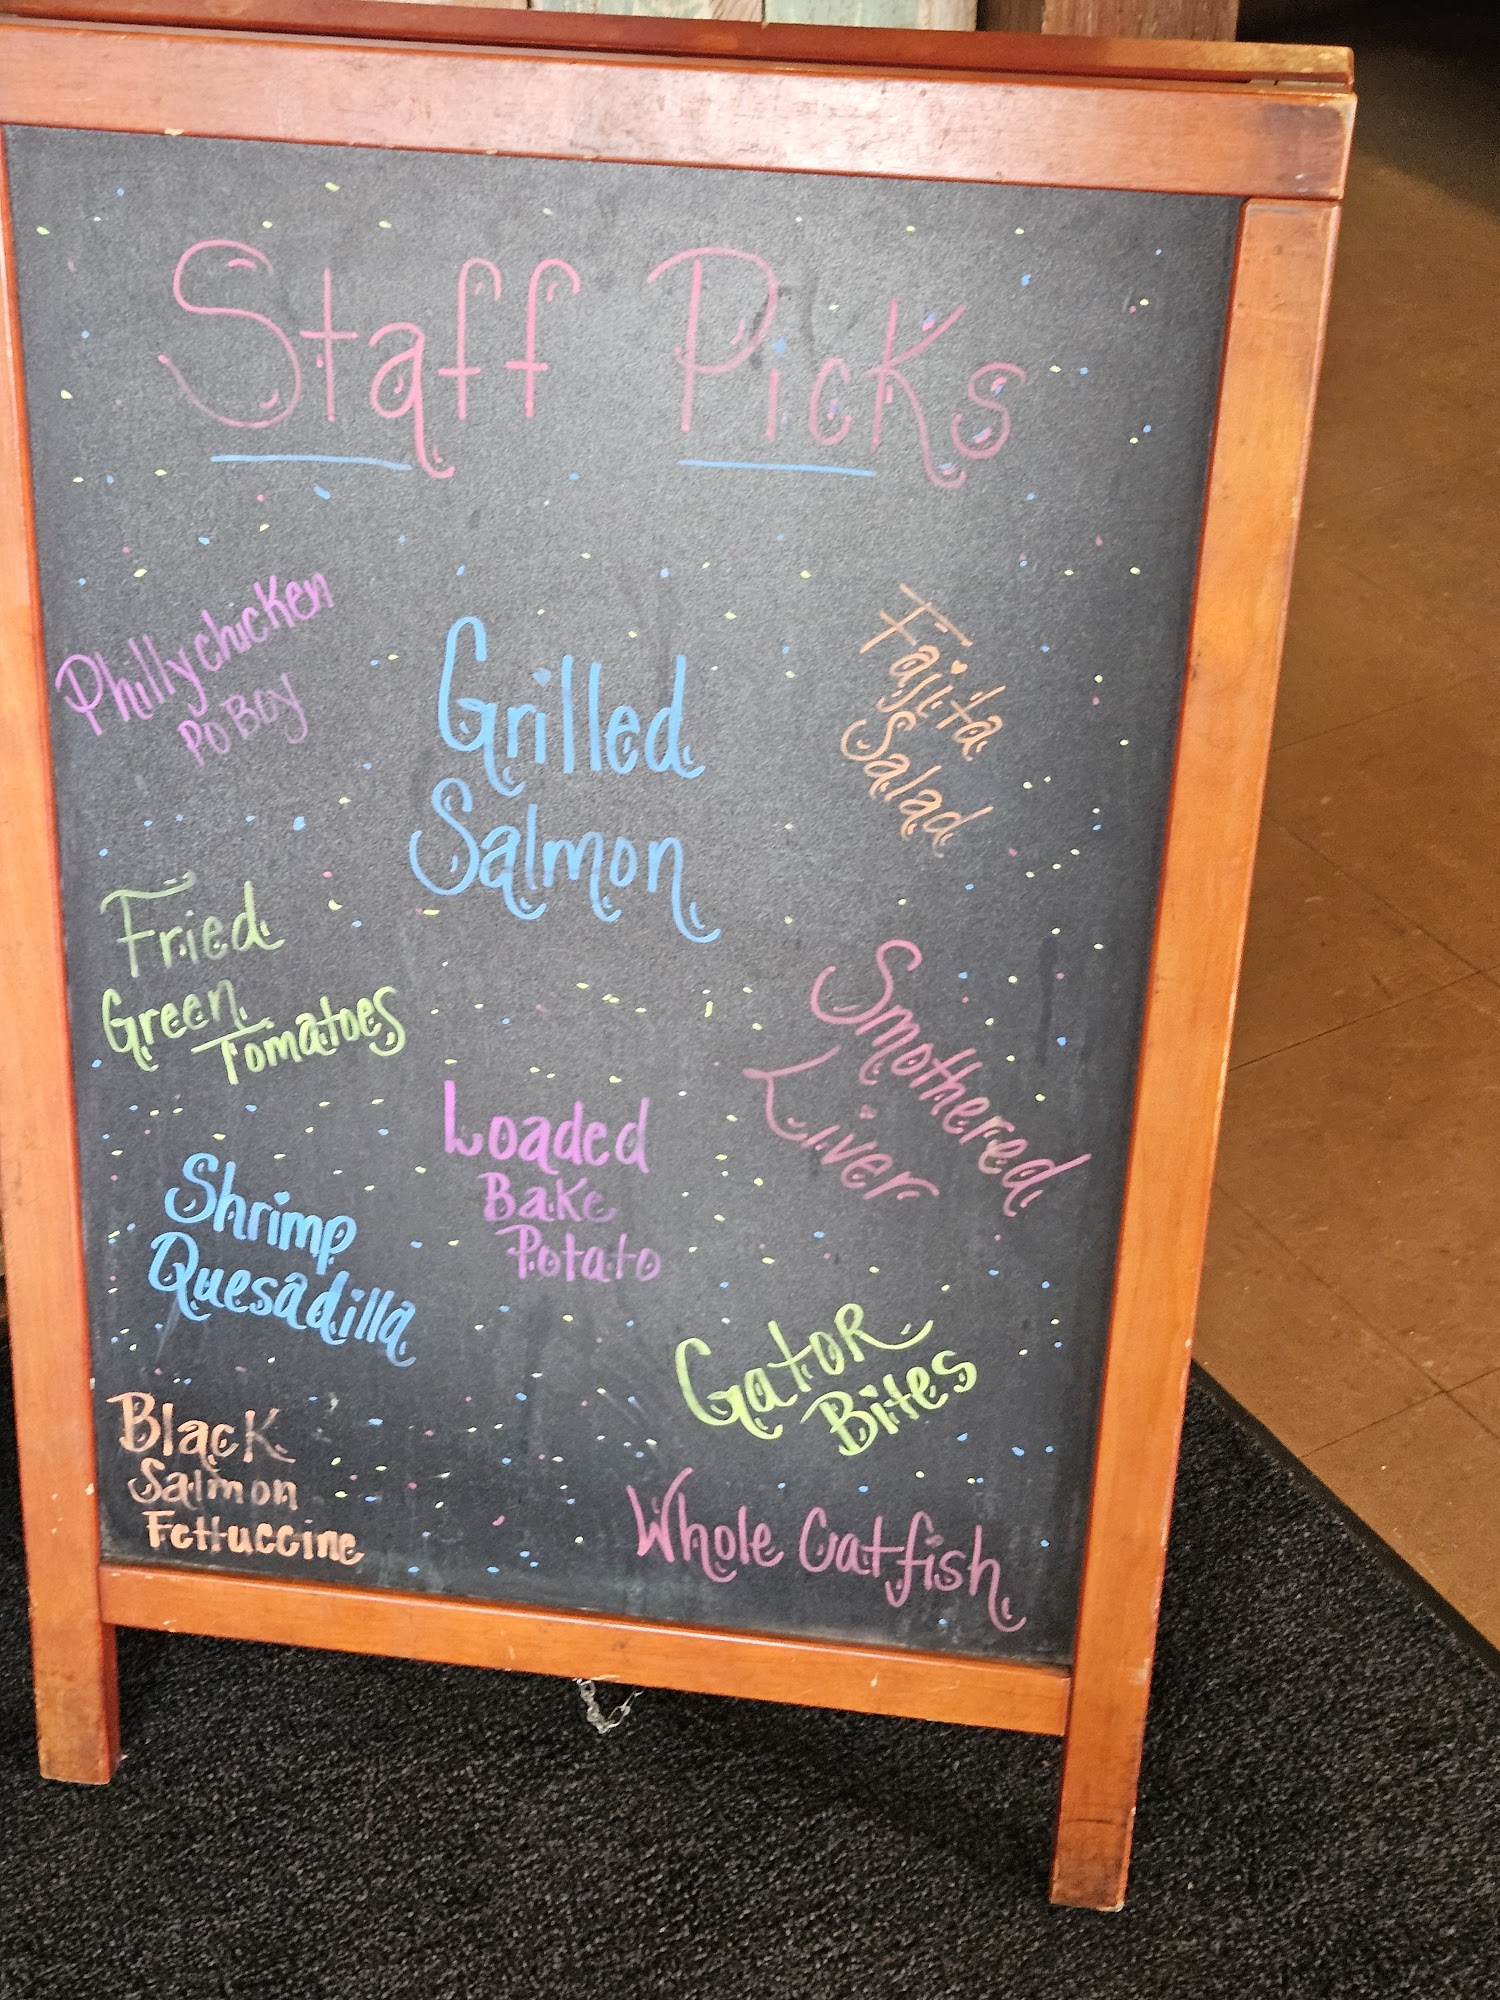 Staff Picks
Philly chicken
PO BOY
Grilled
Salmon
Fajita
Salad
Fried
Green
Tomatoes
Smothered
Liver
Loaded
Bake
Potato
Shrimp
Quesadilla
Gator
Bites
Black
Salmon
Fettuccine
Whole Catfish